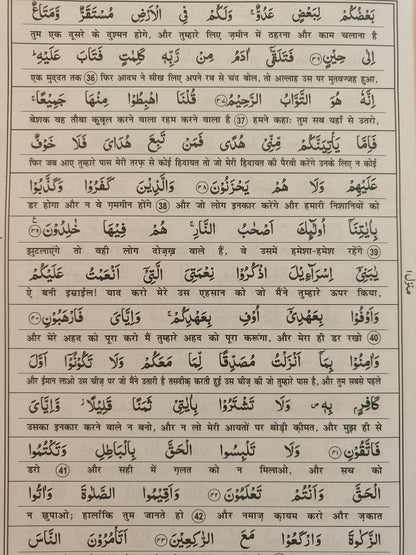 بَعْضُكُمْ لِبَعْضٍ عَدُوٌّ ۚ وَلَكُمْ فِى الْاَرْضِ مُسْتَقَرٌّ وَّمَتَاعٌ
तुम एक दूसरे के दुश्मन होगे. और तुम्हारे लिए ज़मीन में ठहरना और काम चलाना है
اِلٰى حِيْنٍ ﴿۳۶﴾ فَتَلَقّٰٓى اٰدَمُ مِنْ رَّبِّهٖ كَلِمٰتٍ فَتَابَ عَلَيْهِ ؕ
एक मुद्दत तक (36) फिर आदम ने सीख लिए अपने रब से चंद बोल, तो अल्लाह उस पर मुतवज्जह हुआ,
اِنَّهٗ هُوَ التَّوَّابُ الرَّحِيْمُ ﴿۳۷﴾ قُلْنَا اهْبِطُوْا مِنْهَا جَمِيْعًا ۚ
बेशक वह तौबा क़ुबूल करने वाला रहम करने वाला है (37) हमने कहाः तुम सब यहाँ से उतरो,
فَاِمَّا يَاْتِيَنَّكُمْ مِّنِّىْ هُدًى فَمَنْ تَبِعَ هُدَاىَ فَلَا خَوْفٌ
फिर जब आए तुम्हारे पास मेरी तरफ़ से कोई हिदायत तो जो मेरी हिदायत की पैरवी करेंगे उनके लिए न कोई
عَلَيْهِمْ وَلَا هُمْ يَحْزَنُوْنَ ﴿۳۸﴾ وَالَّذِيْنَ كَفَرُوْا وَكَذَّبُوْا
डर होगा और न वे ग़मगीन होंगे (38) और जो लोग इनकार करेंगे और हमारी निशानियों को
بِاٰيٰتِنَآ اُولٰٓئِكَ اَصْحٰبُ النَّارِ ۚ هُمْ فِيْهَا خٰلِدُوْنَ ﴿۳۹﴾
झुटलाएंगे तो वही लोग दोज़ख़ वाले हैं, वे उसमें हमेशा-हमेशा रहेंगे (39)
يٰبَنِىْٓ اِسْرَآءِيْلَ اذْكُرُوْا نِعْمَتِىَ الَّتِىْٓ اَنْعَمْتُ عَلَيْكُمْ
ऐ बनी इस्राईल! याद करो मेरे उस एहसान को जो मैंने तुम्हारे ऊपर किया,
وَاَوْفُوْا بِعَهْدِىْٓ اُوْفِ بِعَهْدِكُمْ ۚ وَاِيَّاىَ فَارْهَبُوْنِ ﴿۴۰﴾
और मेरे अहद को पूरा करो मैं तुम्हारे अहद को पूरा करूंगा, और मेरा ही डर रखो (40)
وَاٰمِنُوْا بِمَآ اَنْزَلْتُ مُصَدِّقًا لِّمَا مَعَكُمْ وَلَا تَكُوْنُوْٓا اَوَّلَ
और ईमान लाओ उस चीज़ पर जो मैंने उतारी है तसदीक़ करती हुई उस चीज़ की जो तुम्हारे पास है, और तुम सबसे पहले
كَافِرٍۢ بِهٖ ۪ وَلَا تَشْتَرُوْا بِاٰيٰتِىْ ثَمَنًا قَلِيْلًا ؗ وَّاِيَّاىَ
उसका इनकार करने वाले न बनो, और न लो मेरी आयतों पर थोड़ी क़ीमत, और मुझ ही से
فَاتَّقُوْنِ ﴿۴۱﴾ وَلَا تَلْبِسُوا الْحَقَّ بِالْبَاطِلِ وَتَكْتُمُوا
डरो (41) और सही में ग़लत को न मिलाओ, और सच को
الْحَقَّ وَاَنْتُمْ تَعْلَمُوْنَ ﴿۴۲﴾ وَاَقِيْمُوا الصَّلٰوةَ وَاٰتُوا
न छुपाओ; हालाँकि तुम जानते हो (42) और नमाज़ क़ायम करो और ज़कात
الزَّكٰوةَ وَارْكَعُوْا مَعَ الرّٰكِعِيْنَ ﴿۴۳﴾ اَتَاْمُرُوْنَ النَّاسَ
منزل ۱